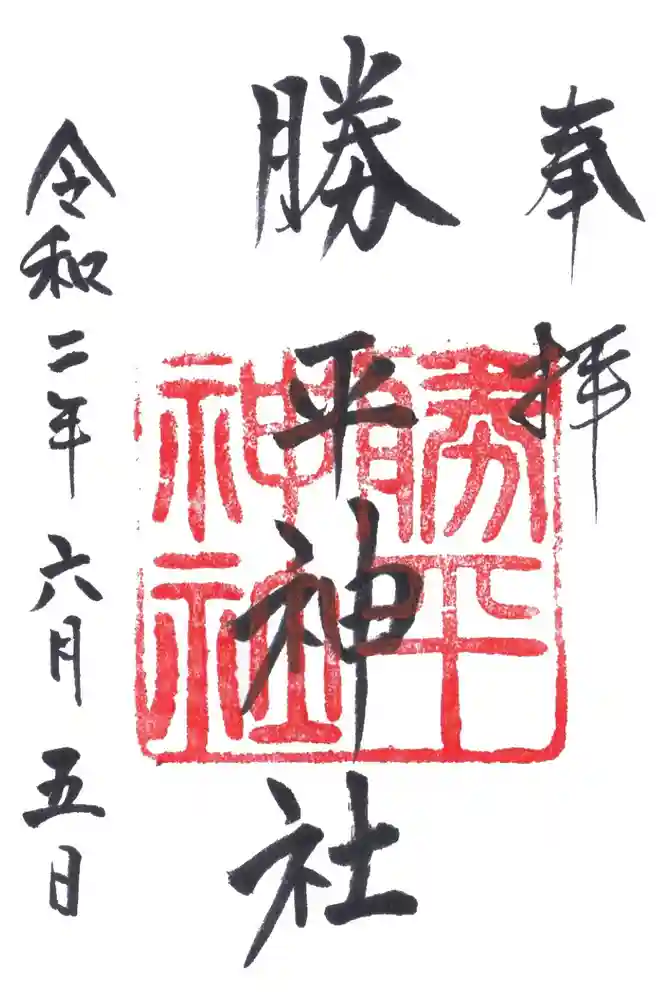 奉拝
勝平神社
勝平神社
令和二年六月五日